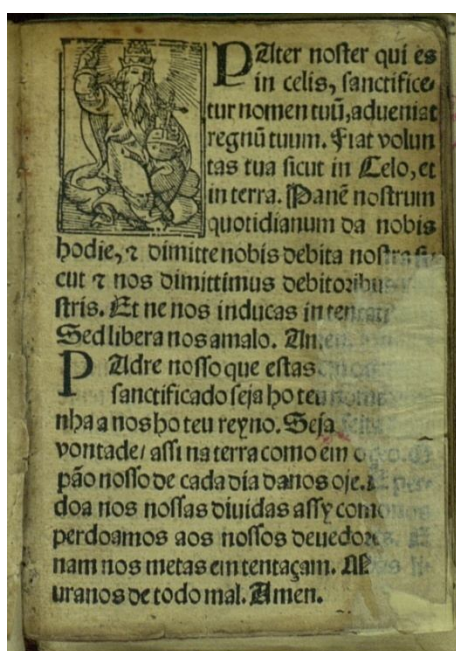 PAter noster qui es
in celis, sanctifice
tur nomen tuũ, adveniat
regnũ tuum. Fiat volun
tas tua sicut in Celo, et
in terra. Panẽ nostrum
quotidianum da nobis
hodie, ⁊ dimitte nobis debita nostra si
cut ⁊ nos dimittimus
stris. Et ne nos inducas in
Sed libera nos amalo. Amen.
PAdre nosso que estas
sanctificado seja ho teu
nha a nos ho teu reyno. Seja
vontade/ assi na terra como em
pão nosso de cada dia danos oje.
doa nos nossas dividas assy como
perdoamos aos nossos
nam nos metas em tentaçam.
vranos de todo mal. Amen.